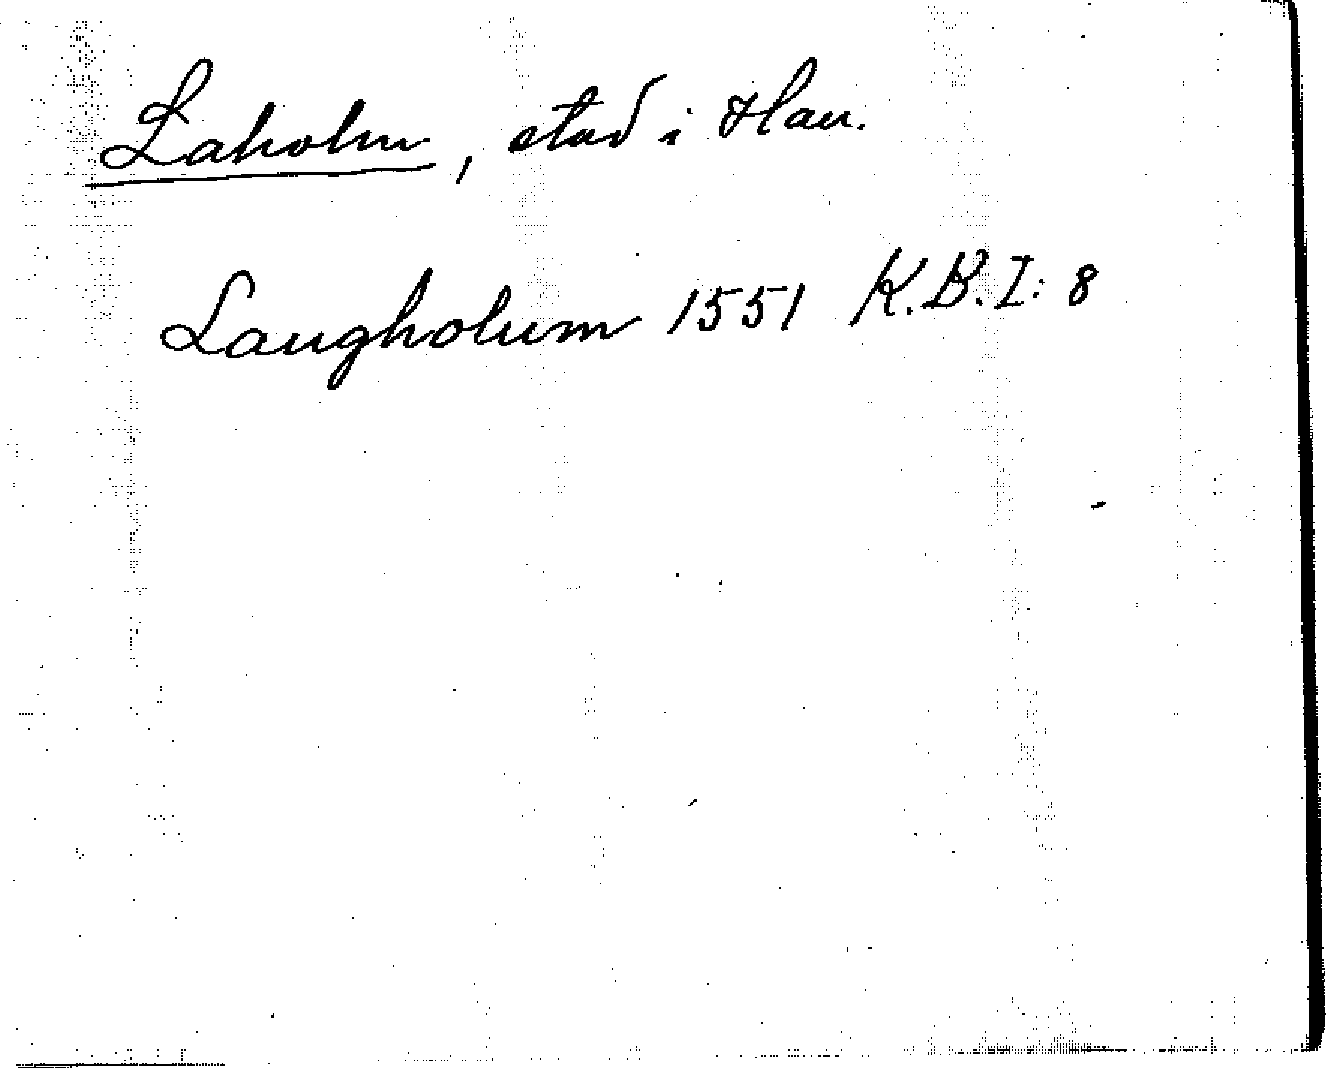 Laholm, stad i Hall.
Laugholum 1551 K.B.I: 8